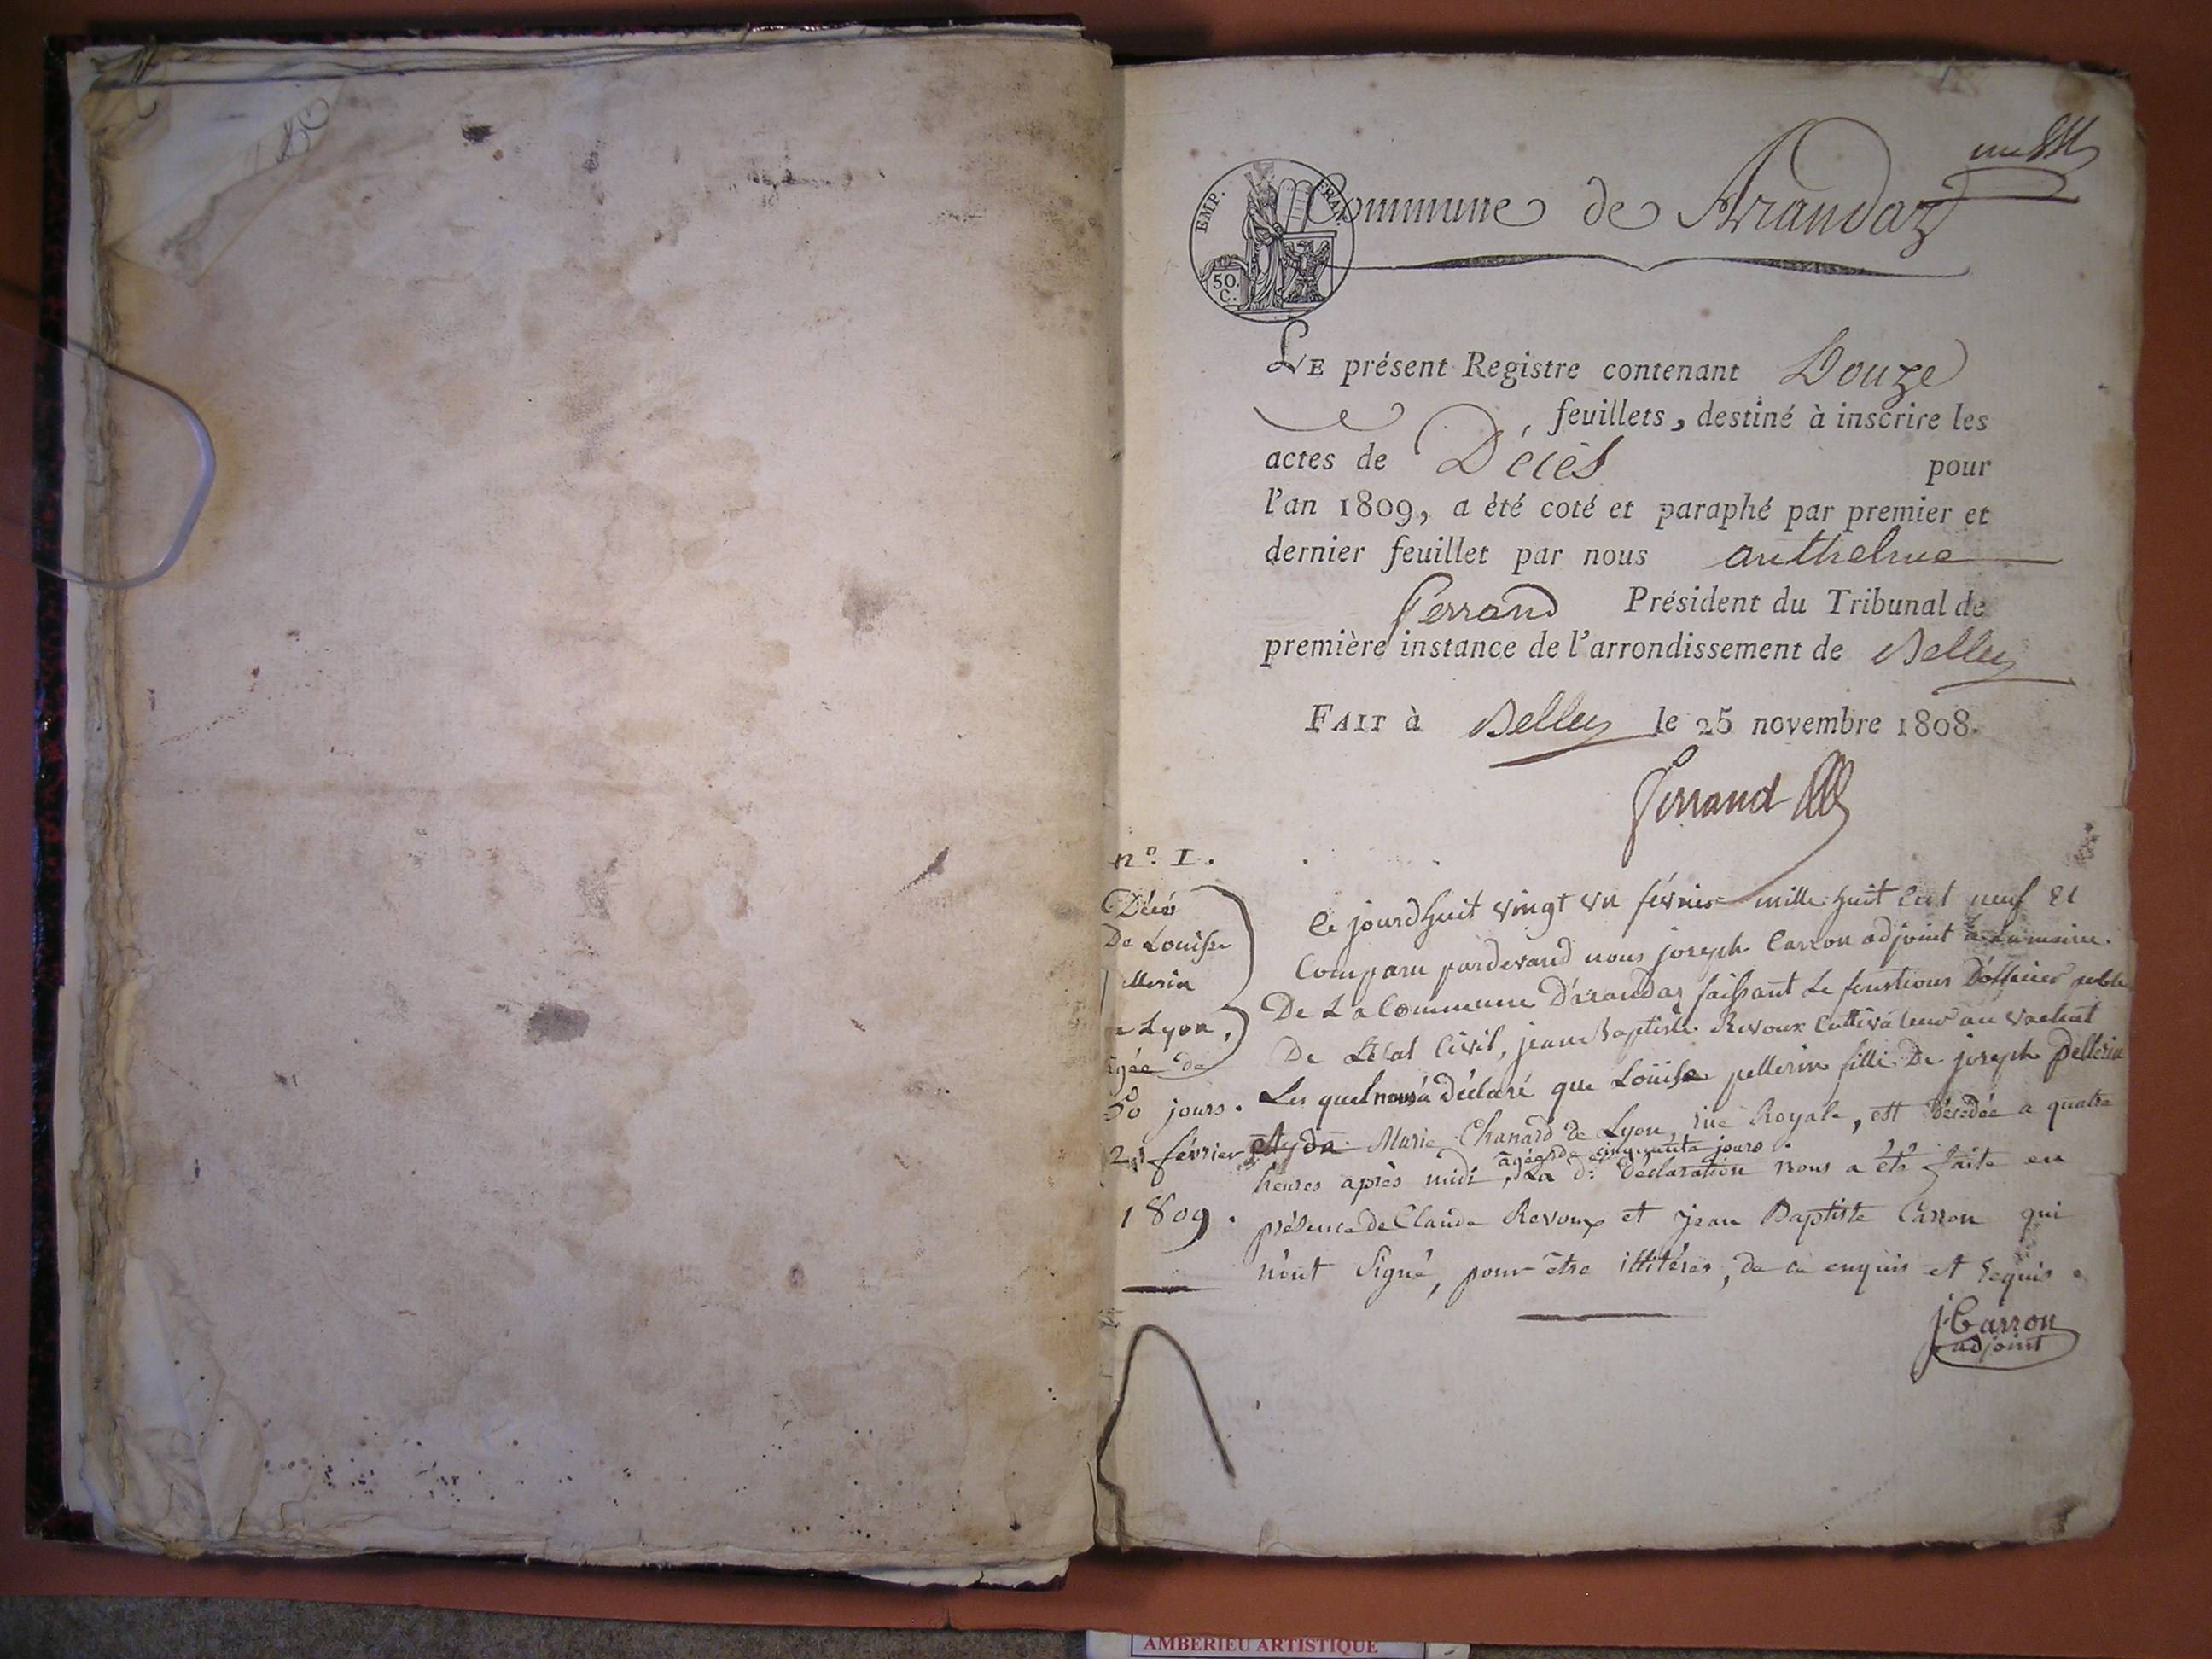 une
EMP. FRAN.
50.
C.
Commune de Arandaz
LE présent Registre contenant Douze
feuillets, destiné à inscrire les
actes de Décès pour
l'an 1809, a été coté et paraphé par premier et
dernier feuillet par nous anthelme
Ferrand Président du Tribunal de
première instance de l'arrondissement de Belley
FAIT à Belley le 25 novembre 1808.
Ferrand
n.º 1.
Décés
De Louise
ellerin
de Lyon,
âgée de
50 jours.
21 février
1809.
Ce jourdhuit vingt un février mille huit Cent neuf Et
Comparu pardevand nous joseph Carron adjoint à La mairie
De La Commune D'arandaz faissant Le fonctions D'officier public
De L'état Civil, jean Baptiste Revoux Cultivateur au vachat
Les quel nous a Déclaré que Louise pellerin fille De joseph pellerin
et de Marie Chanard de Lyon, rue Royale, est décedée a quatre
âgée de cinquante jours.
heures après midi, La d: déclaration nous a été faite en
présence de Claude Revoux et jean Baptiste Carron qui
n'ont Signé, pour être illitérés, de ce enquis et requis.
j Carron
adjoint
AMBERIEU ARTISTIQUE